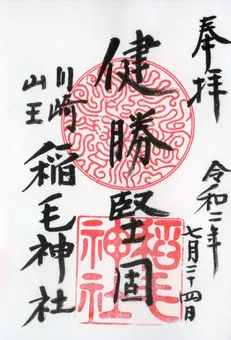 奉拝
令和二年
七月二十四日
健勝堅固
川崎
山王
稲毛神社
稲毛
神社